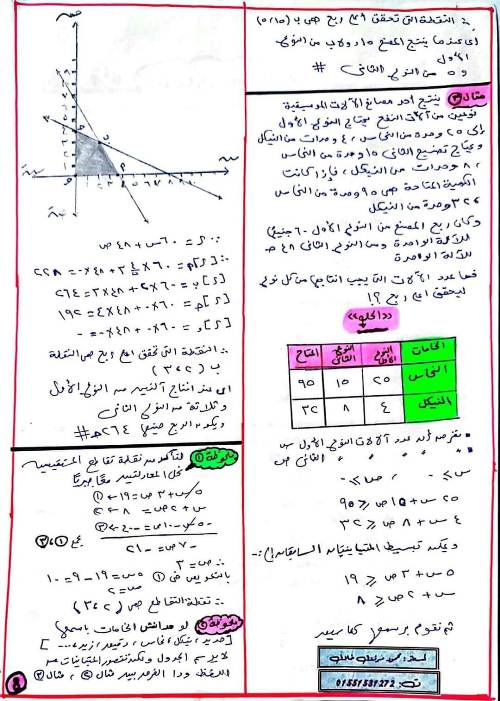 ∴ النقطة التى تحقق اكبر ربح هى ب (١٥، ٥)
اى عندما ينتج المصنع ١٥ دولاب من النوع
الأول
و ٥ من النوع الثانى #
مثال ٣ ينتج أحد مصانع الآلات الموسيقية
نوعين من آلات النفخ يحتاج النوع الأول
إلى ٢٥ وحدة من النحاس، ٤ وحدات من النيكل
ويحتاج تصنيع الثانى ١٥ وحدة من النحاس
، ٨ وحدات من النيكل، فإذا كانت
الكمية المتاحة هى ٩٥ وحدة من النحاس
، ٣٢ وحدة من النيكل
وكان ربح المصنع من النوع الأول ٦٠ جنيهاً
للآلة الواحدة ومن النوع الثانى ٤٨ جـ
للآلة الواحدة
فما عدد الآلات التى يجب انتاجها من كل نوع
ليحقق اكبر ربح ؟!
<<الحل>>
الخامات النوع الأول النوع الثانى المتاح
النحاس ٢٥ ١٥ ٩٥
النيكل ٤ ٨ ٣٢
• نفرض أن عدد آلات النوع الأول س
" " " " الثانى ص
س ≥ ٠ ، ص ≥ ٠
٢٥ س + ١٥ ص ≤ ٩٥
٤ س + ٨ ص ≤ ٣٢
ويمكن تبسيط المتباينات السابقة إلى :-
٥ س + ٣ ص ≤ ١٩
س + ٢ ص ≤ ٨
ثم نقوم برسمها كما سبق
ت: 01551581272
∴ د = ٦٠ س + ٤٨ ص
∴ [د]م = ٦٠ × ٣ ٤/٥ + ٤٨ × ٠ = ٢٢٨
[د]ب = ٦٠ × ٢ + ٤٨ × ٣ = ٢٦٤
[د]ج = ٦٠ × ٠ + ٤٨ × ٤ = ١٩٢
[د]و = ٦٠ × ٠ + ٤٨ × ٠ = ٠
∴ النقطة التى تحقق اكبر ربح هى النقطة
ب (٢، ٣)
اى عند انتاج آلتين من النوع الأول
وثلاثة من النوع الثانى
ويكون الربح حينها ٢٦٤ جـ #
ملحوظة ١ للتأكد من نقطة تقاطع المستقيمين
نحل المعادلتين معاً جبرياً
٥ س + ٣ ص = ١٩ ← ١
س + ٢ ص = ٨ ← ٢
-٥ س - ١٠ ص = -٤٠ ← ٣
بجمع ١، ٣
-٧ ص = -٢١
∴ ص = ٣
بالتعويض فى ١ ٥ س = ١٩ - ٩ = ١٠
س = ٢
∴ نقطة التقاطع هى (٢، ٣)
ملحوظة ٢ لو مدانش الخامات باسمها
[حديد، نيكل، نحاس، دقيق، زبدة، ...]
لا يرسم الجدول ولكن نستنتج المتباينات من
8